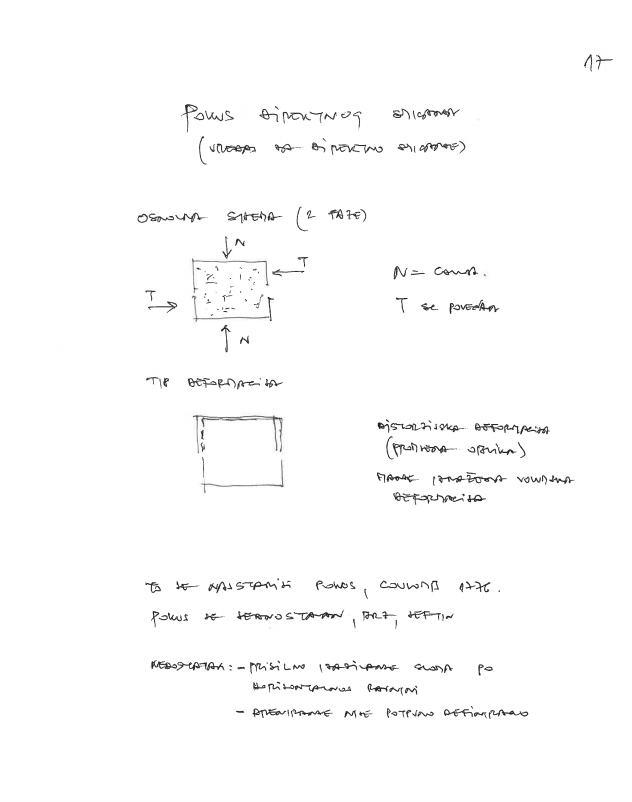 17
POKUS DIREKTNOG SMICANJA
(UREĐAJ ZA DIREKTNO SMICANJE)
OSNOVNA SHEMA (2 FAZE)
N
T
N = CONST.
T
T SE POVEĆAVA
N
TIP DEFORMACIJA
DISTORZIJSKA DEFORMACIJA
(PROMJENA OBLIKA)
MANJE IZRAŽENA VOLUMNA
DEFORMACIJA
TO JE NAJSTARIJI POKUS, COULOMB 1776.
POKUS JE JEDNOSTAVAN, BRZ, JEFTIN
NEDOSTATAK: - PRISILNO SLOMA PO
HORIZONTALNOJ RAVNINI
- DRENIRANJE NIJE POTPUNO DEFINIRANO